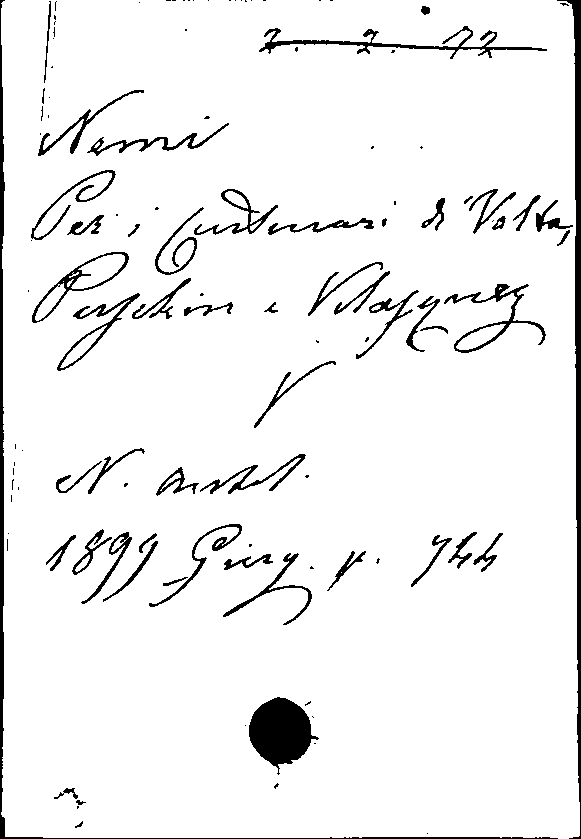 2. 2. 72
Nemi
Per i Centenari di Volta,
Puschin e Velasquez
V
N. Antol.
1899 Giug. p. 744